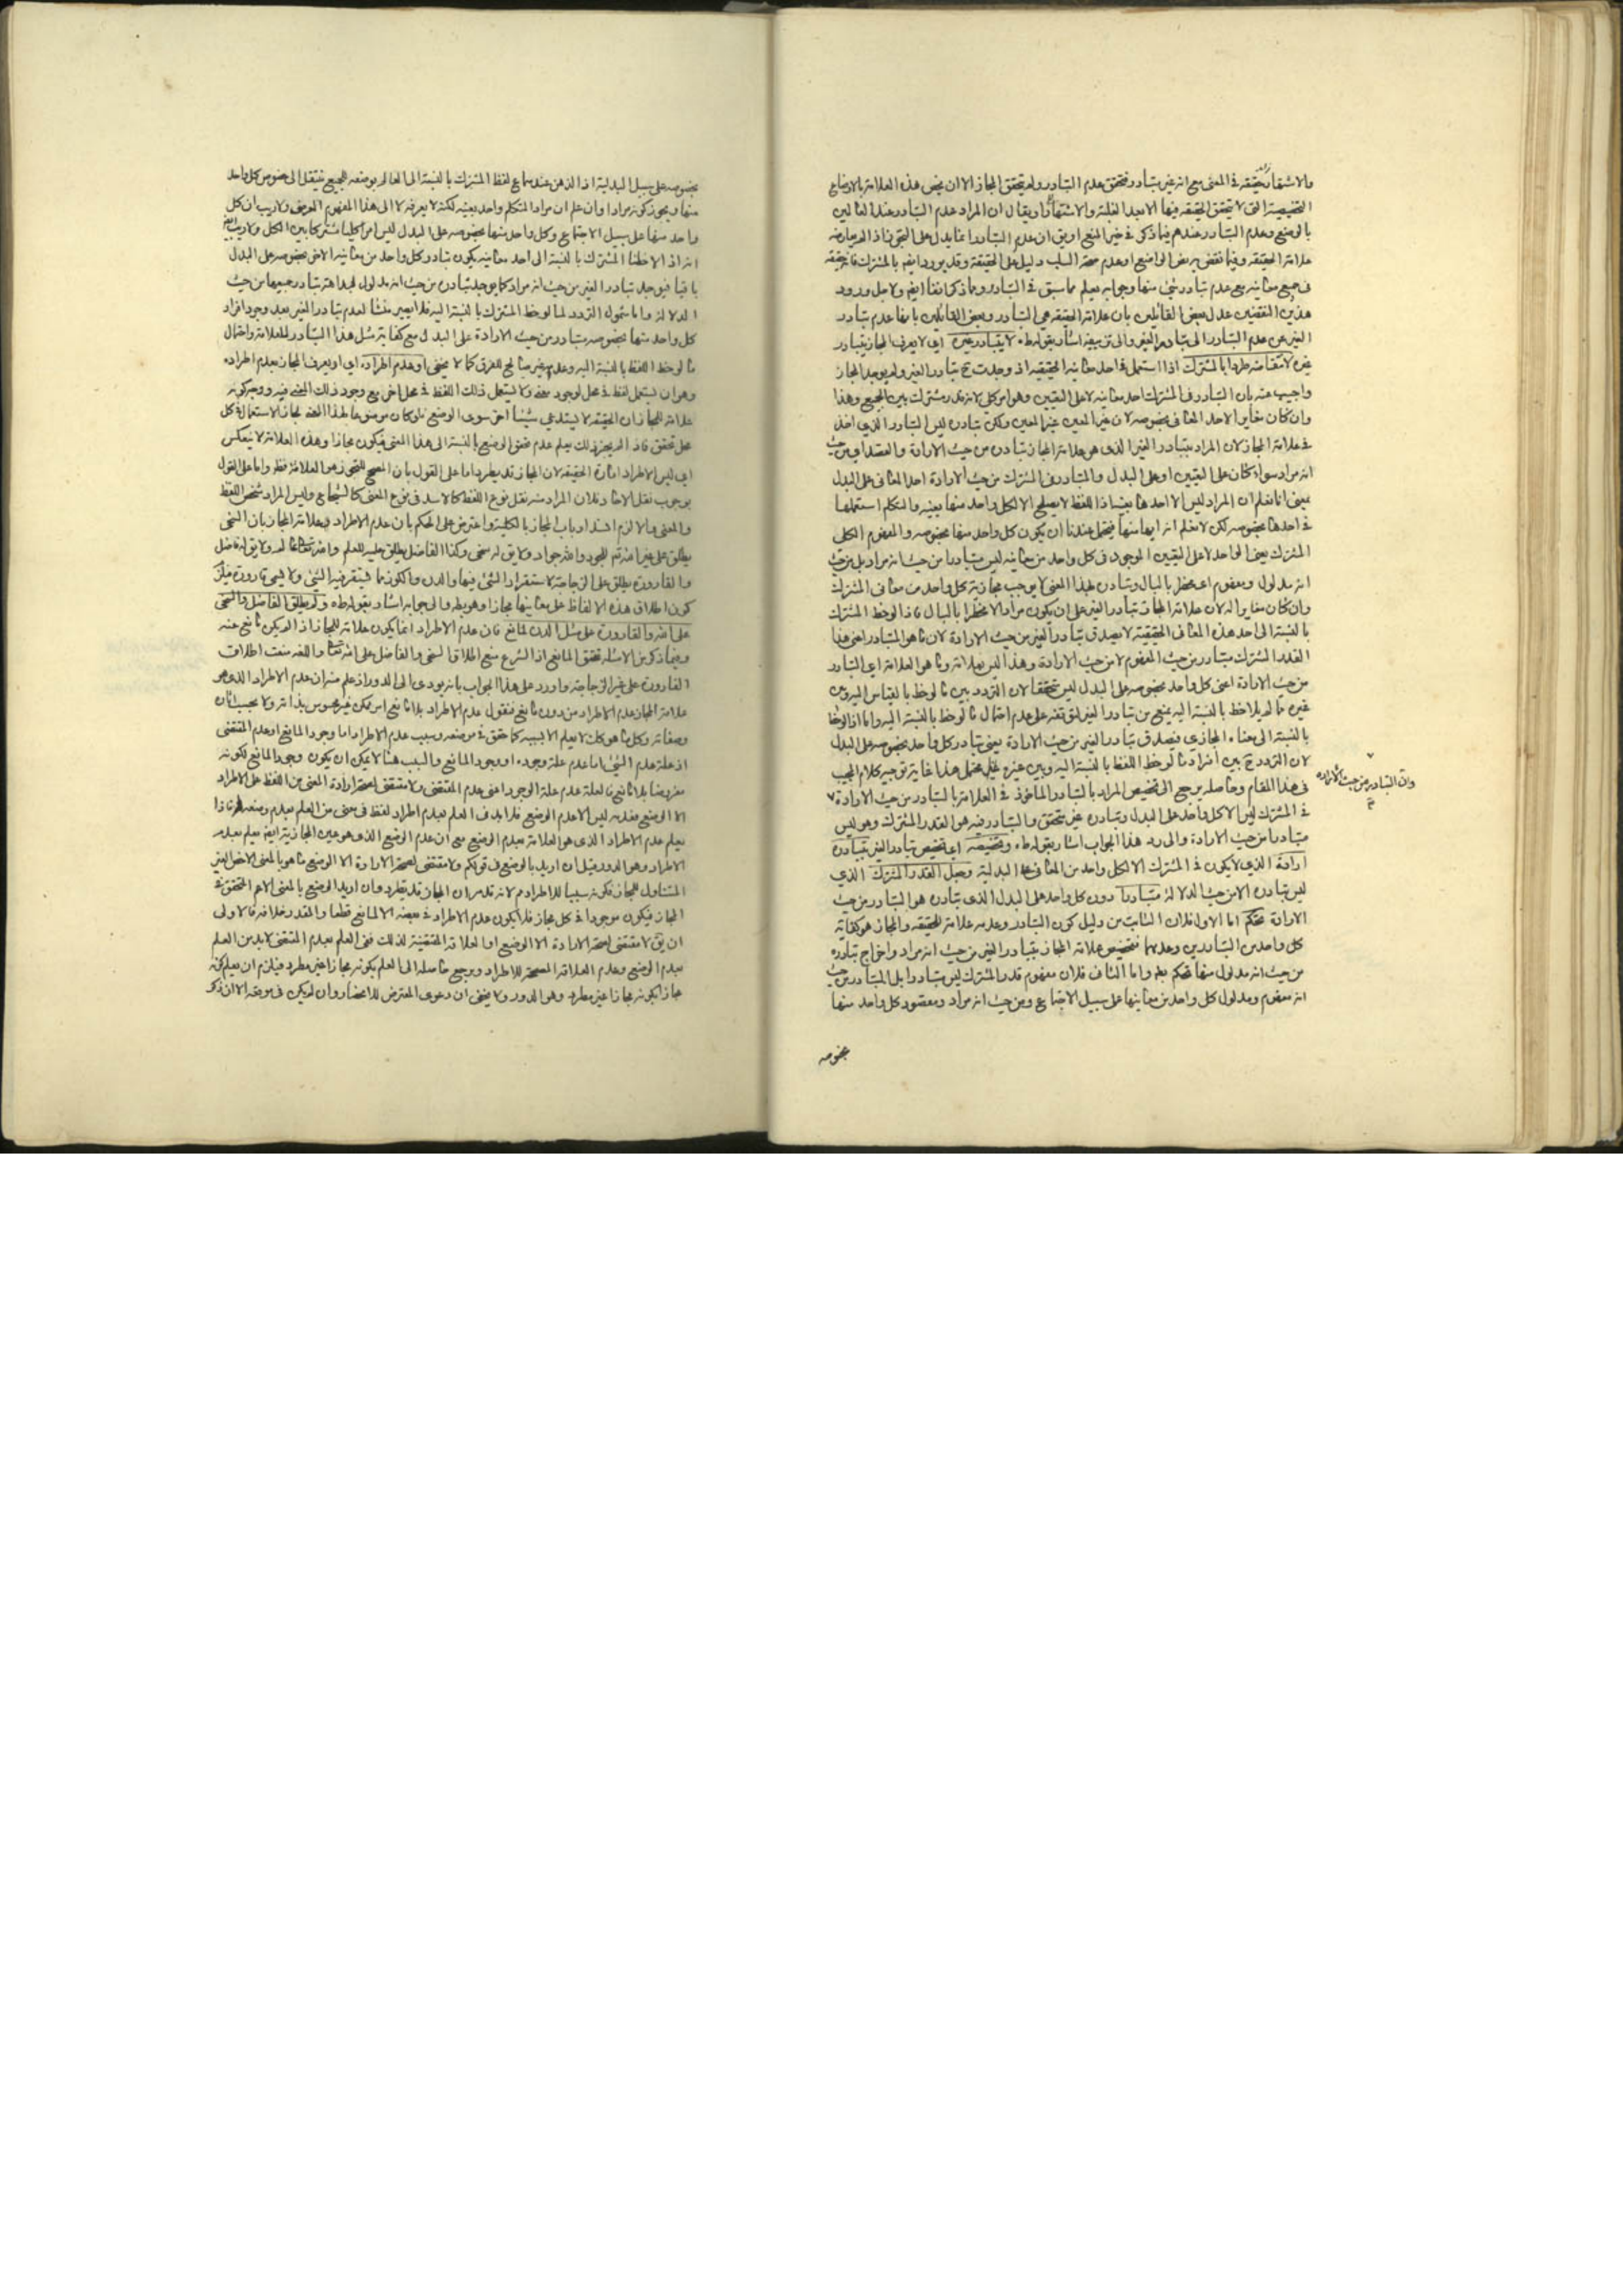 والاشتهار حقيقة في المعنى مع انه غير متبادر فتحقق عدم التبادر ولم يتحقق المجاز الا ان يخص هذه العلامة بالاوضاع
التخصيصية التى لا تتحقق الحقيقة فيها الا بعد الغلبة والاشتهار او يقال ان المراد عدم التبادر عند العالمين
بالوضع وعدم التبادر عندهم فيما ذكر في حيز المنع او يق ان عدم التبادر انما يدل على التجوز اذا لم يعارضه
علامة الحقيقة وفيما نقض به بعض المواضع او عدم صحة السلب دليل على الحقيقة وقد يورد ايضم بالمشترك فانه حقيقة
في جميع معانيه مع عدم تبادر شئ منها وجوابه يعلم مما سبق في التبادر وما ذكر انفا ايضم ولاجل ورود
هذين النقضين عدل بعض القائلين بان علامة الحقيقة هي التبادر وبعض القائلين بانها عدم تبادر
الغير عن عدم التبادر الى تبادر الغير والى تزييفه اشار بقوله طه لا بتبادر غيره اي لا يعرف المجاز بتبادر
غيره لانتقاضه طردا بالمشترك اذا استعمل في احد معانيه الحقيقية اذ وجدت ح تبادر الغير ولم يوجد المجاز
واجيب عنه بان التبادر في المشترك احد معانيه لا على التعيين وهو امر كلى لانه قدر مشترك بين الجميع وهذا
وان كان مغايرا لاحد المعاني بخصوصه لان غير المعين غير المعين ولكن تبادره ليس التبادر الذي اخذ
في علامة المجاز لان المراد بتبادر الغير الذى هو علامة المجاز تبادره من حيث الارادة والقصد اي من حيث
انه مراد سواء كان على التعيين او على البدل والمتبادر في المشترك من حيث الارادة احد المعاني على البدل
بمعنى انا نعلم ان المراد ليس الا احدها بعينه اذا اللفظ لا يصلح الا لكل واحد منها بعينه والمتكلم استعملها
في احدها بخصوصه لكن لا نعلم انه ايها منها فيحتمل عندنا ان يكون كل واحد منها بخصوصه والمفهوم الكلى
المشترك يعنى الواحد لا على التعيين الموجود في كل واحد من معانيه ليس متبادرا من حيث انه مراد بل من حيث
انه مدلول ومفهوم اى مخطر بالبال وتبادره بهذا المعنى لا يوجب مجازية كل واحد من معانى المشترك
وان كان مغايرا له لان علامة المجاز تبادر الغير على ان يكون مرادا لا مخطرا بالبال فاذا لوحظ المشترك
بالنسبة الى احد هذه المعانى الحقيقية لا يصدق تبادر الغير من حيث الارادة لان ما هو المتبادر اعنى هذا
القدر المشترك متبادر من حيث المفهوم لا من حيث الارادة وهذا ليس بعلامة وما هو العلامة اي التبادر
من حيث الارادة اعنى كل واحد بخصوصه على البدل ليس متحققا لان التردد بين ما لوحظ بالقياس اليه وبين
غيره ما لم يلاحظ بالنسبة اليه يمنع من تبادر الغير لتوقفه على عدم احتمال ما لوحظ بالنسبة اليه واما اذا لوحظ
بالنسبة الى معناه المجازي فيصدق تبادر الغير من حيث الارادة يعنى تبادر كل واحد بخصوصه على البدل
لان التردد ح بين افراد ما لوحظ اللفظ بالنسبة اليه وبين غيره غير محتمل هذا غاية توجيه كلام المجيب
في هذا المقام وحاصله يرجع الى تخصيص المراد بالتبادر الماخوذ في العلامة بالتبادر من حيث الارادة
وان التبادر من حيث الارادة
في المشترك ليس الا كل واحد على البدل وتبادره غير متحقق والتبادر منه هو القدر المشترك وهو ليس
متبادرا من حيث الارادة والى رد هذا الجواب اشار بقوله طه وتخصيصه اي تخصيص تبادر الغير بتبادره
ارادة الذي لا يكون في المشترك الا لكل واحد من المعاني على البدلية وجعل القدر المشترك الذي
ليس تبادره الا من حيث الدلالة متبادرا دون كل واحد على البدل الذى تبادره هو التبادر من حيث
الارادة تحكم اما الاول فلان الثابت من دليل كون التبادر وعدمه علامة للحقيقة والمجاز هو كفاية
كل واحد من التبادرين وعدمهما فتخصيص علامة المجاز بتبادر الغير من حيث انه مراد واخراج تبادره
من حيث انه مدلول منها تحكم بعلم واما الثاني فلان مفهوم قدر المشترك ليس متبادرا بل المتبادر من حيث
انه مفهوم ومدلول كل واحد من معانيها على سبيل الاجتماع ومن حيث انه مراد ومقصود كل واحد منها
بخصوصه
بخصوصه على سبيل البدلية اذ الذهن عند سماع لفظ المشترك بالنسبة الى العالم بوضعه للجميع ينتقل الى خصوص كل واحد
منها ويجوز كونه مرادا وان علم ان مراد المتكلم واحد بعينه لكنه لا يعرفه لا الى هذا المفهوم العرضى ولا ريب ان كل
واحد منها على سبيل الاجتماع وكل واحد منها بخصوصه على البدل ليس امرا كليا مشتركا بين الكل ولا ريب ايضم
انه اذا لاحظنا المشترك بالنسبة الى احد معانيه يكون تبادر كل واحد من معانيه الاخر بخصوصه على البدل
باقيا فيوجد تبادر الغير من حيث انه مراد كما يوجد تبادره من حيث انه مدلول لبداهة تبادر جميعها من حيث
الدلالة واما شمول التردد لما لوحظ المشترك بالنسبة اليه فلا يصير منشأ لعدم تبادر الغير بعد وجود افراد
كل واحد منها بخصوصه متبادر من حيث الارادة على البدل مع كفاية مثل هذا التبادر للعلامة واحتمال
ما لوحظ اللفظ بالنسبة اليه وعدمه غير صالح للفرق كما لا يخفى او عدم اطراده اي او يعرف المجاز بعدم اطراده
وهو ان يستعمل لفظ في محل لوجود معنى ولا يستعمل ذلك اللفظ في محل اخر مع وجود ذلك المعنى فيه ووجه كونه
علامة للمجاز ان الحقيقة لا يستدعي شيئا اخر سوى الوضع فلو كان موضوعا لهذا المعنى لجاز الاستعمال في كل
محل تحقق فاذا لم يجز ذلك يعلم عدم تحقق الوضع بالنسبة الى هذا المعنى فيكون مجازا وهذه العلامة لا ينعكس
اي ليس الاطراد امارة الحقيقة لان المجاز قد يطرد اما على القول بان المصحح للتجوز هو العلاقة فظ واما على القول
بوجوب نقل الاحاد فلان المراد منه نقل نوع اللفظ كالاسد في نوع المعنى كالشجاع وليس المراد شخص اللفظ
والمعنى والا لزم انسداد باب المجاز بالكلية واعترض على الحكم بان عدم الاطراد علامة المجاز بان السخى
يطلق على غير الله تع للجود والله جواد ولا يق له سخى وكذا الفاضل يطلق عليه للعلم والله تعالى عالم ولا يق له فاضل
والقارورة يطلق على الزجاجة لاستقرار الشئ فيها والدن والكوز مما يستقر فيه الشئ ولا يسمى قارورة فيلزم
كون اطلاق هذه الالفاظ على معانيها مجازا وهو بط والى جوابه اشار بقوله طه ولم يطلق الفاضل والسخى
على الله والقارورة على مثل الدن لمانع فان عدم الاطراد انما يكون علامة للمجاز اذا لم يكن مانع عنه
وفيما ذكر من الامثلة تحقق المانع اذ الشرع منع اطلاق السخى والفاضل على الله تعالى واللغة منعت اطلاق
القارورة على غير الزجاجة واورد على هذا الجواب بانه يودى الى الدور اذ علم منه ان عدم الاطراد الذى هو
علامة المجاز عدم الاطراد من دون مانع فنقول عدم الاطراد بلا مانع امر ممكن غير محسوس بذاته ولا بحسب اثاره
وصفاته وكل ما هو كك لا يعلم الا بسببه كما حقق في موضعه وسبب عدم الاطراد اما وجود المانع او عدم المقتضى
اذ علة عدم الشئ اما عدم علة وجوده او وجود المانع والسبب هنا لا يمكن ان يكون وجود المانع لكونه
مفروضا بلا مانع فالعلة عدم علة الوجود اعنى عدم المقتضى ولا مقتضى لصحة ارادة المعنى من اللفظ على الاطراد
الا الوضع فعدمه ليس الا عدم الوضع فلا بد في العلم بعدم اطراد لفظ في معنى من العلم بعدم وضعه له فاذا
يعلم عدم الاطراد الذى هو العلامة بعدم الوضع مع ان عدم الوضع الذى هو عين المجازية ايضم يعلم بعدم
الاطراد وهو الدور فقيل ان اريد بالوضع في قولكم ولا مقتضى لصحة الارادة الا الوضع ما هو بالمعنى الاخص الغير
المتناول للمجاز فكونه سببا للاطراد مم لانه قد مر ان المجاز قد يطرد وان اريد الوضع بالمعنى الاعم المتحقق في
المجاز فيكون موجودا في كل مجاز فلا يكون عدم الاطراد في بعضه الا لمانع قطعا والمقدر خلافه فالاولى
ان يق لا مقتضى لصحة الارادة الا الوضع او العلاقة المقتضية لذلك ففى العلم بعدم المقتضى لا بد من العلم
بعدم الوضع وعدم العلاقة المصححة للاطراد ويرجع حاصله الى العلم بكونه مجازا غير مطرد فيلزم ان يعلم كونه
مجازا بكونه مجازا غير مطرد وهو الدور ولا يخفى ان دعوى المعترض للانحصار وان لم يكن في موقعه الا ان ذكر